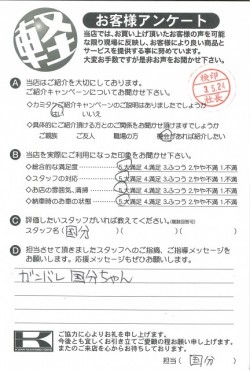 軽
お客様アンケート
当店では、お買い上げ頂いたお客様の声を可能
な限り現場に反映し、お客様により良い商品と
サービスを提供する事に努めています。
大変お手数ですが是非お声をお聞かせ下さい。
A 当店はご紹介を大切にしております。
ご紹介キャンペーンについてお聞かせ下さい。
◇カミタケご紹介キャンペーンのご説明はありましたでしょうか
はい いいえ
◇具体的にご紹介頂ける方とのご関係をお聞かせ頂けますでしょうか
ご親族 ご友人 職場の方 機会があれば紹介したい
検印
8.5.21
社長
B 当店を実際にご利用になった印象をお聞かせ下さい。
◇総合的な満足度 5.大満足 4.満足 3.ふつう 2.やや不満 1.不満
◇スタッフの対応 5.大満足 4.満足 3.ふつう 2.やや不満 1.不満
◇お店の雰囲気、清掃 5.大満足 4.満足 3.ふつう 2.やや不満 1.不満
◇納車時のお車の状態 5.大満足 4.満足 3.ふつう 2.やや不満 1.不満
C 評価したいスタッフがいれば教えてください。(複数回答可)
スタッフ名( 国分 )( )( )
D 担当させて頂きましたスタッフへのご指摘、ご指導メッセージを
お願いします。応援メッセージもぜひお願いします。
ガンバレ 国分ちゃん
K
ご協力に心よりお礼を申し上げます。
今後とも宜しくお引き立てご愛顧の程お願い申し上げます。
またのご来店を心からお待ちしております。
担当( 国分 )